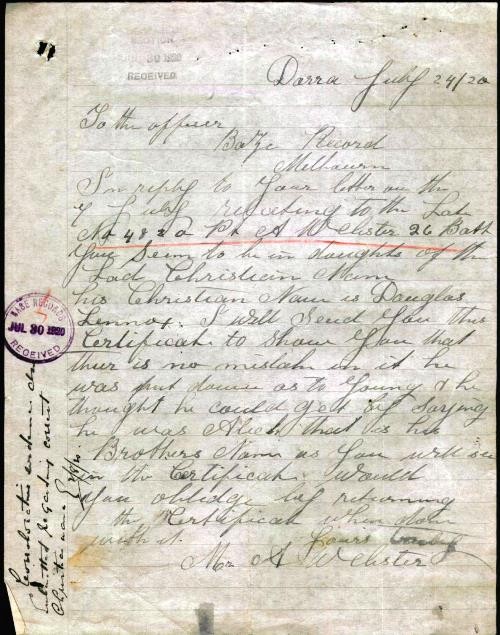 JUL 30 1920
RECEIVED
Darra July 24/20
To the officer
Baze Record
Melbourn
In reply to your letter on the
7 July relating to the Late
No 4820 Pt A Webster 26 Batt
you seem to be in doughts of the
Lad Christian Nam
his Christian Nam is Douglas
Lennox. I will Send you this
Certificat to show you that
thur is no mistak in it he
was put down as to young & he
thought he could get by saying
he was Alick that is his
Brothers Nam as you will see
in the Certificat. Would
you oblidge by returning
the Certificat when don
with it. Yours
Mr A Webster
BASE RECORDS
JUL 30 1920
RECEIVED
evidence
submitted regarding correct
Christian name